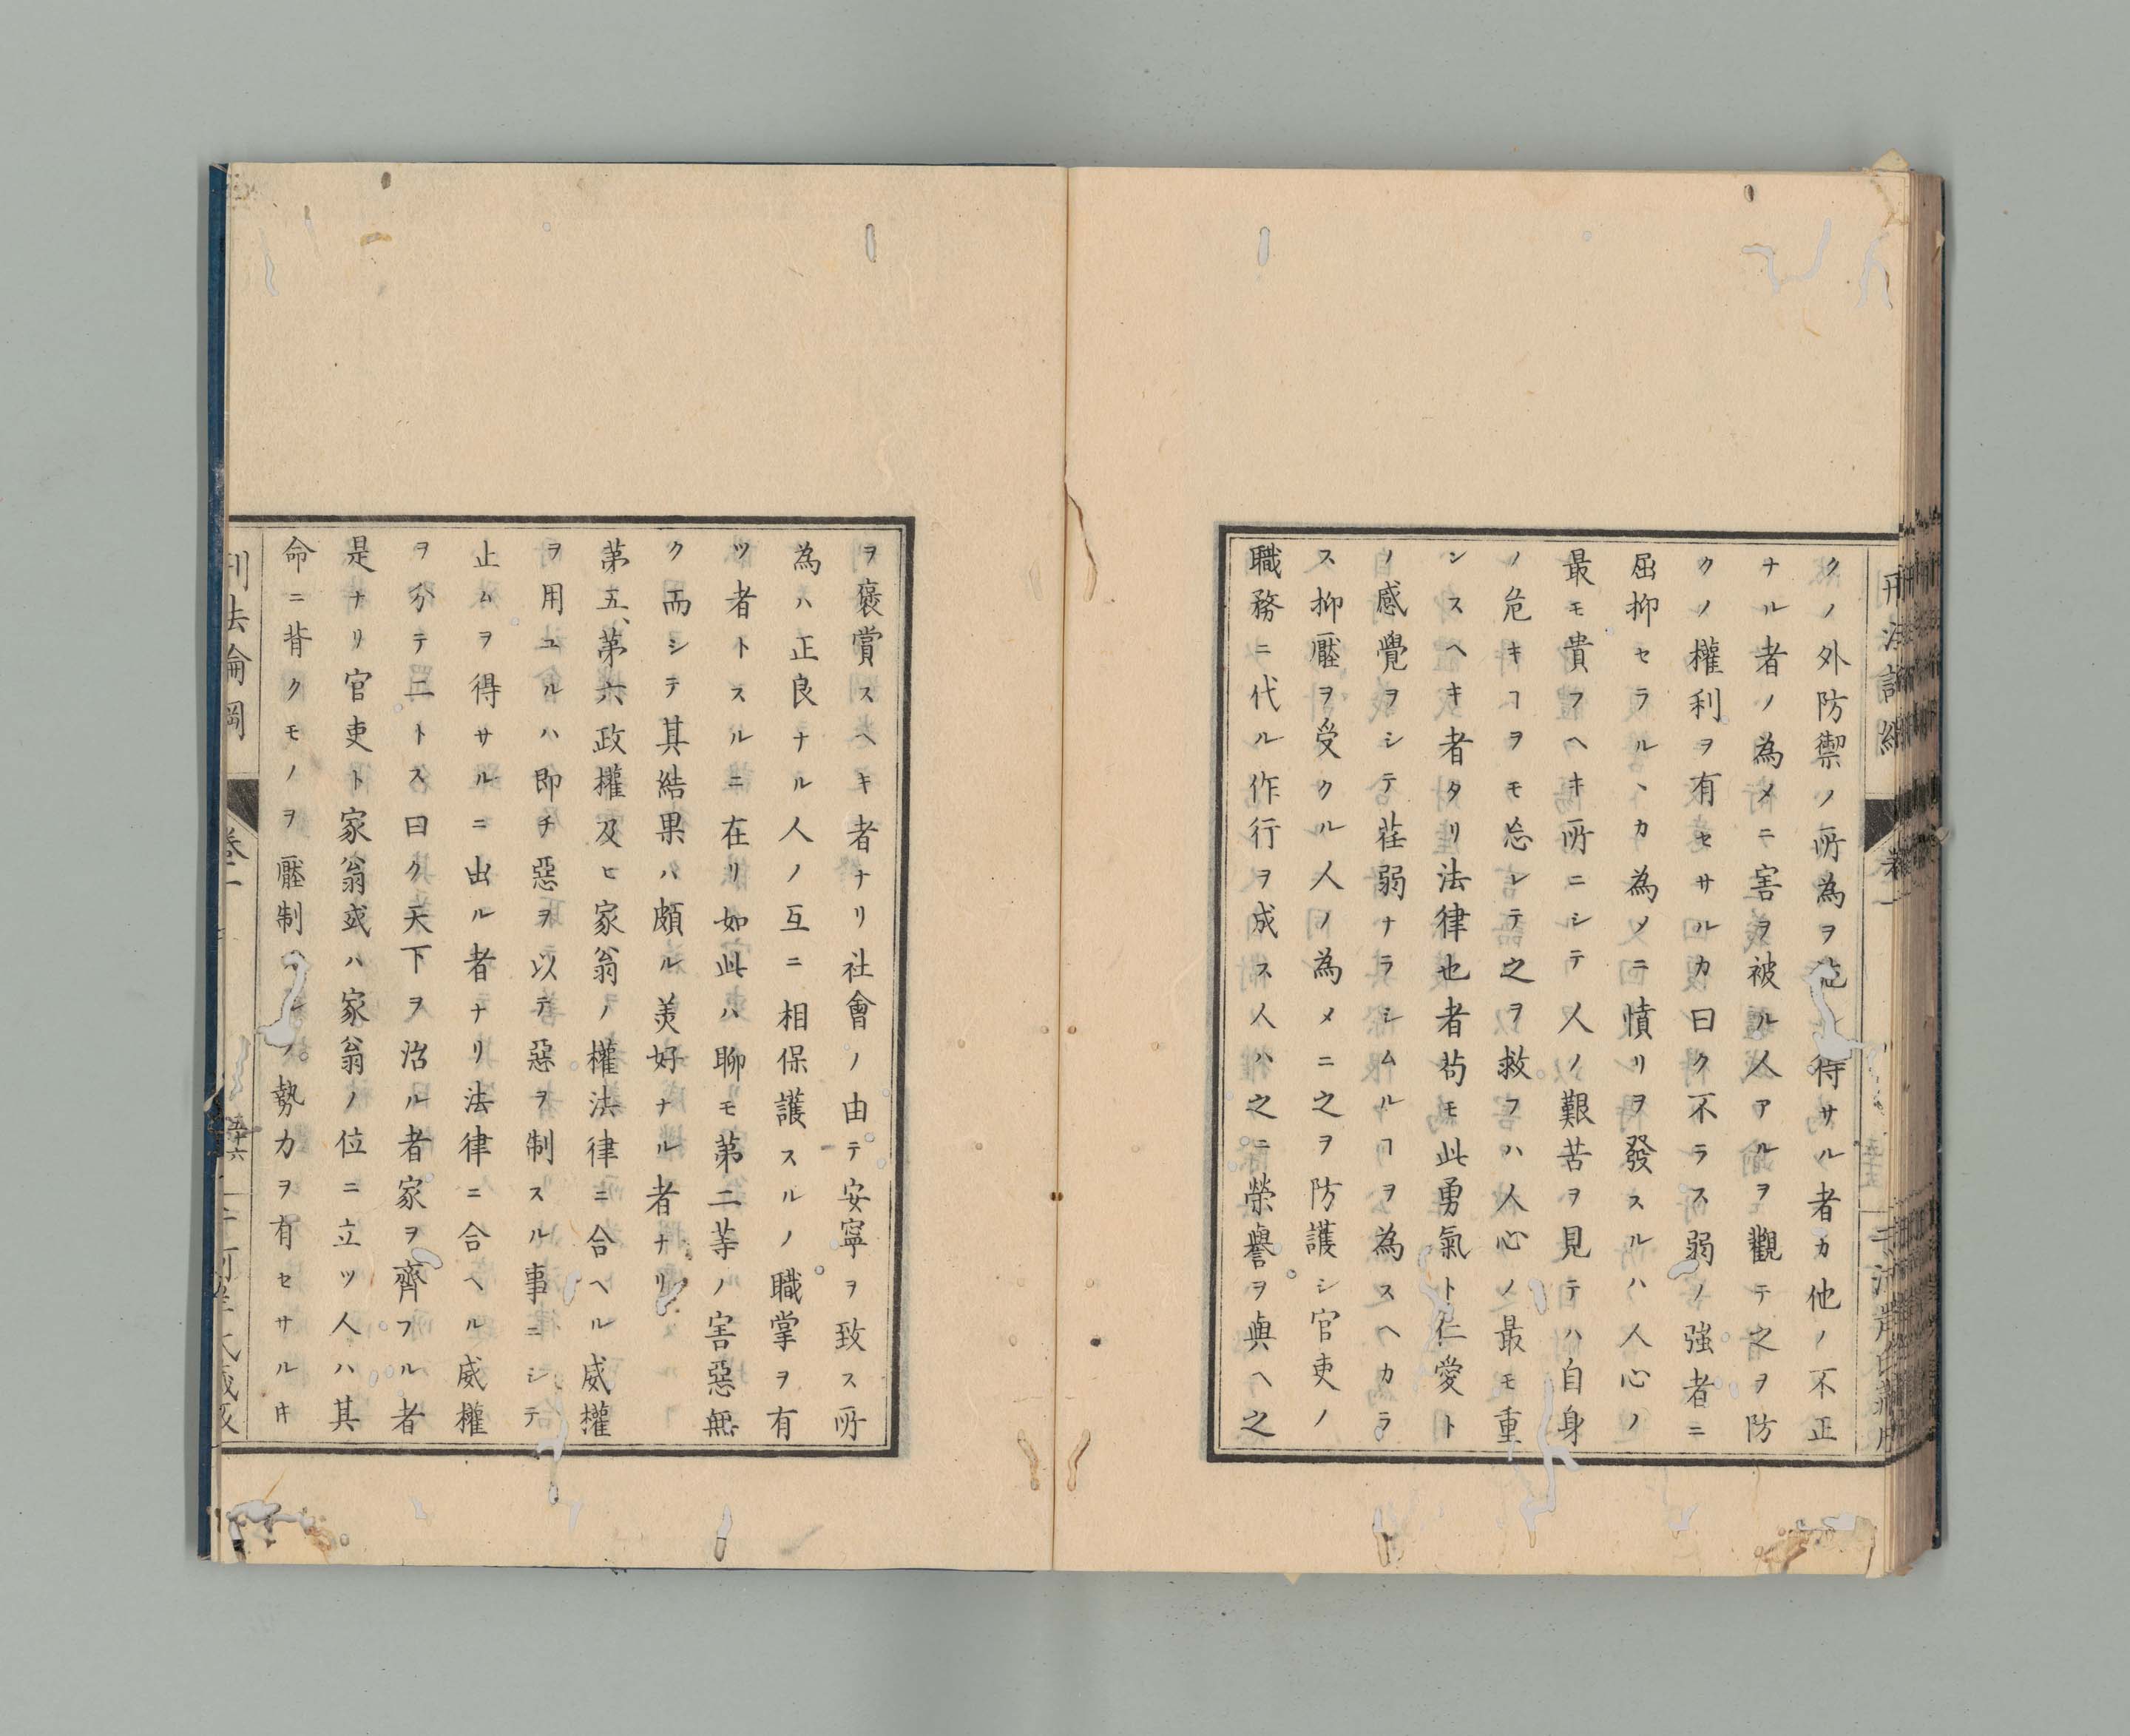 クノ外防禦ノ所為ヲ 待サル者カ他ノ不正
ナル者ノ為メニ害ヲ被ル人アルヲ觀テ之ヲ防
クノ權利ヲ有セサルカ曰ク不ラス弱ノ強者ニ
屈抑セラルヽカ為メニ憤リヲ發スルハ人心ノ
最モ貴フヘキ所ニシテ人ノ艱苦ヲ見テハ自身
ノ危キヿヲモ忘レテ之ヲ救フハ人心ノ最モ重
ンスヘキ者タリ法律也者苟モ此勇氣ト仁愛ト
ノ感覺ヲシテ荏弱ナラシムルヿヲ為スヘカラ
ス抑壓ヲ受クル人ノ為メニ之ヲ防護シ官吏ノ
職務ニ代ル作行ヲ成ス人ハ之ニ榮譽ヲ與ヘ之
ヲ褒賞スヘキ者ナリ社會ノ由テ安寧ヲ致ス所
為ハ正良ナル人ノ互ニ相保護スルノ職掌ヲ有
ツ者トスルニ在リ如此ハ聊モ第二等ノ害惡無
ク而シテ其結果ハ頗ル美好ナル者ナリ
第五、第六政權及ヒ家翁ノ權法律ニ合ヘル威權
ヲ用ユルハ即チ惡ヲ以テ惡ヲ制スル事ニシテ
止ムヲ得サルニ出ル者ナリ法律ニ合ヘル威權
ヲ分テ二トス曰ク天下ヲ治ル者家ヲ齊フル者
是ナリ官吏ト家翁或ハ家翁ノ位ニ立ツ人ハ其
命ニ背クモノヲ壓制 ノ勢力ヲ有セサルキ
刑法論綱
卷一
五十六